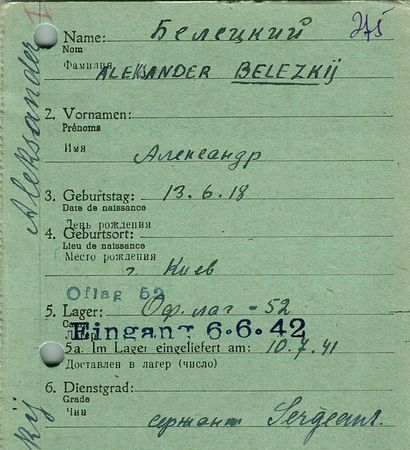 Name: Белецкий 375
Nom
Фамилия
ALEKSANDER BELEZKIJ
2. Vornamen:
Prénoms
Имя
Александр
3. Geburtstag: 13.6.18
Date de naissance
День рождения
4. Geburtsort:
Lieu de naissance
Место рождения
г. Киев
Oflag 52
5. Lager: Оф. лаг - 52
Eingang 6.6.42
5a. Im Lager eingeliefert am: 10.7.41
Доставлен в лагерь (число)
6. Dienstgrad:
Grade
Чин
сержант Sergeant.
Aleksander